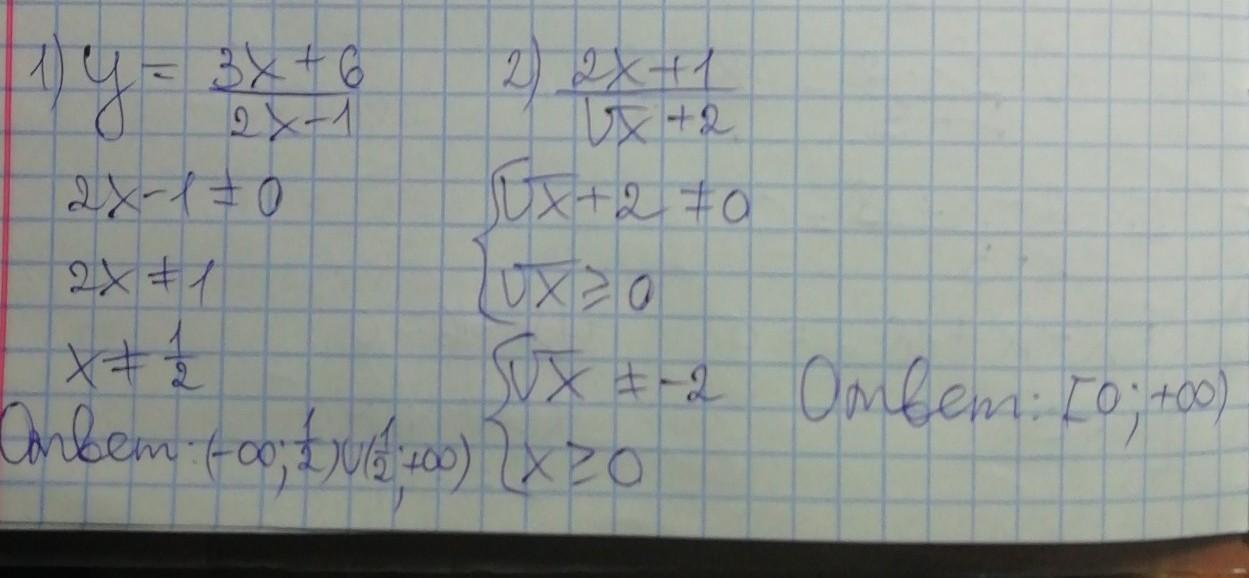 1) y = (3x+6)/(2x-1)
2x-1≠0
2x≠1
x≠1/2
Ответ: (-∞; 1/2)∪(1/2; +∞)
2) (2x+1)/(√x+2)
{√x+2≠0
{√x≥0
{√x≠-2
{x≥0
Ответ: [0; +∞)